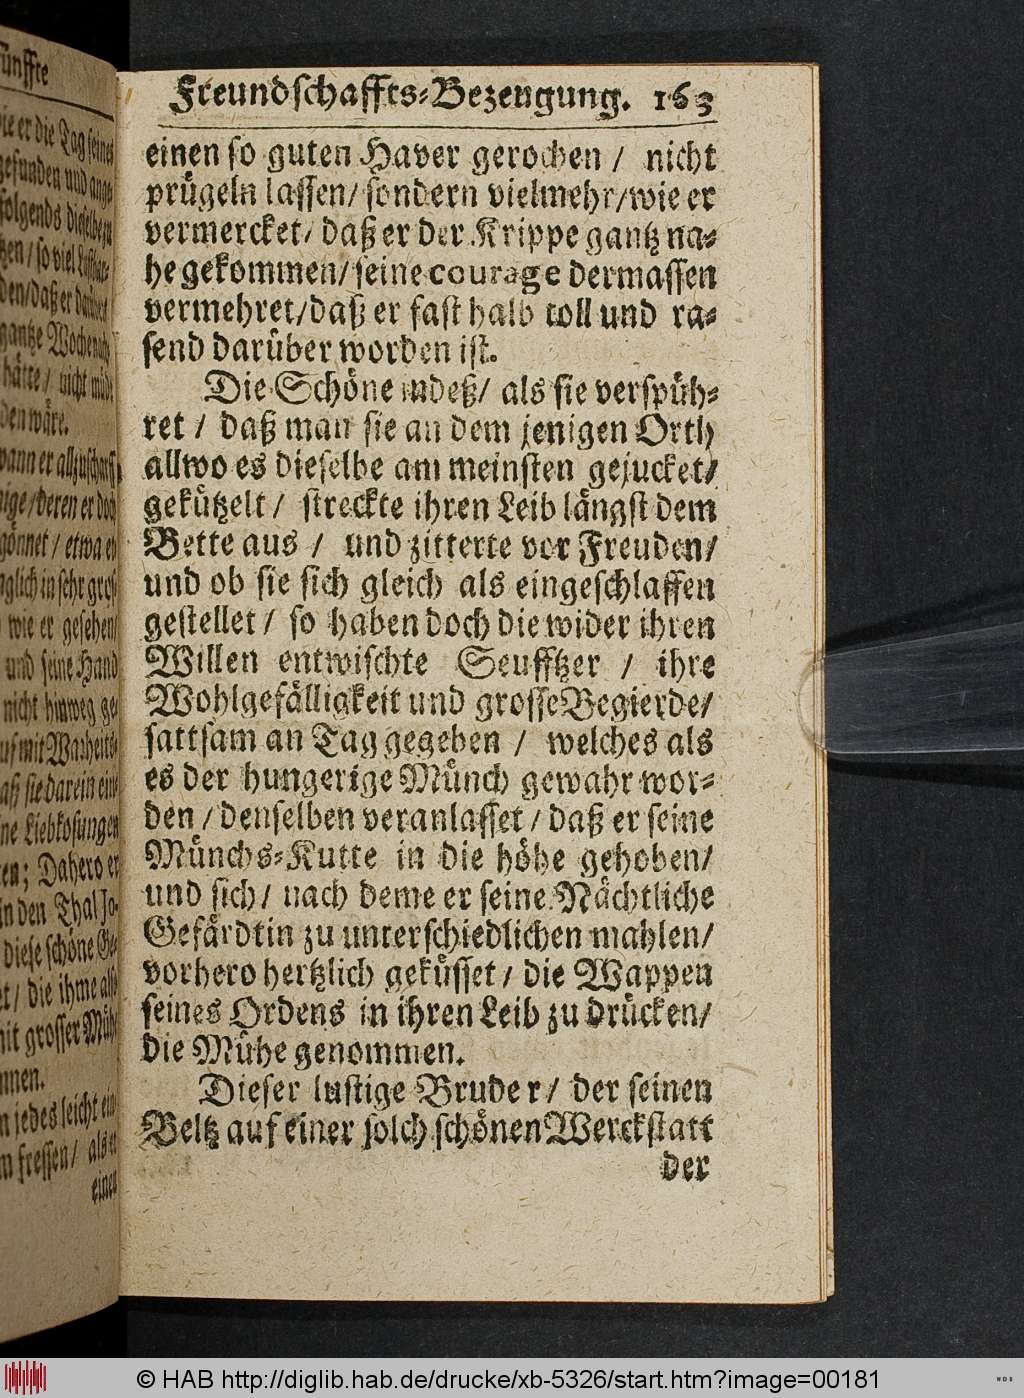 Freundschaffts-Bezeugung. 163
einen so guten Haver gerochen / nicht
prügeln lassen/ sondern vielmehr/ wie er
vermercket/ daß er der Krippe gantz na-
he gekommen/ seine courage dermassen
vermehret/ daß er fast halb toll und ra-
send darüber worden ist.
Die Schöne indeß/ als sie verspüh-
ret / daß man sie an dem jenigen Orth
allwo es dieselbe am meinsten gejucket/
gekützelt / streckte ihren Leib längst dem
Bette aus / und zitterte vor Freuden/
und ob sie sich gleich als eingeschlaffen
gestellet / so haben doch die wider ihren
Willen entwischte Seufftzer / ihre
Wohlgefälligkeit und grosse Begierde/
sattsam an Tag gegeben / welches als
es der hungerige Münch gewahr wor-
den / denselben veranlasset / daß er seine
Münchs-Kutte in die höhe gehoben/
und sich/ nach deme er seine Nächtliche
Gefärdtin zu unterschiedlichen mahlen/
vorhero hertzlich geküsset / die Wappen
seines Ordens in ihren Leib zu drücken/
die Mühe genommen.
Dieser lustige Bruder/ der seinen
Beltz auf einer solch schönen Werckstatt
der
© HAB http://diglib.hab.de/drucke/xb-5326/start.htm?image=00181